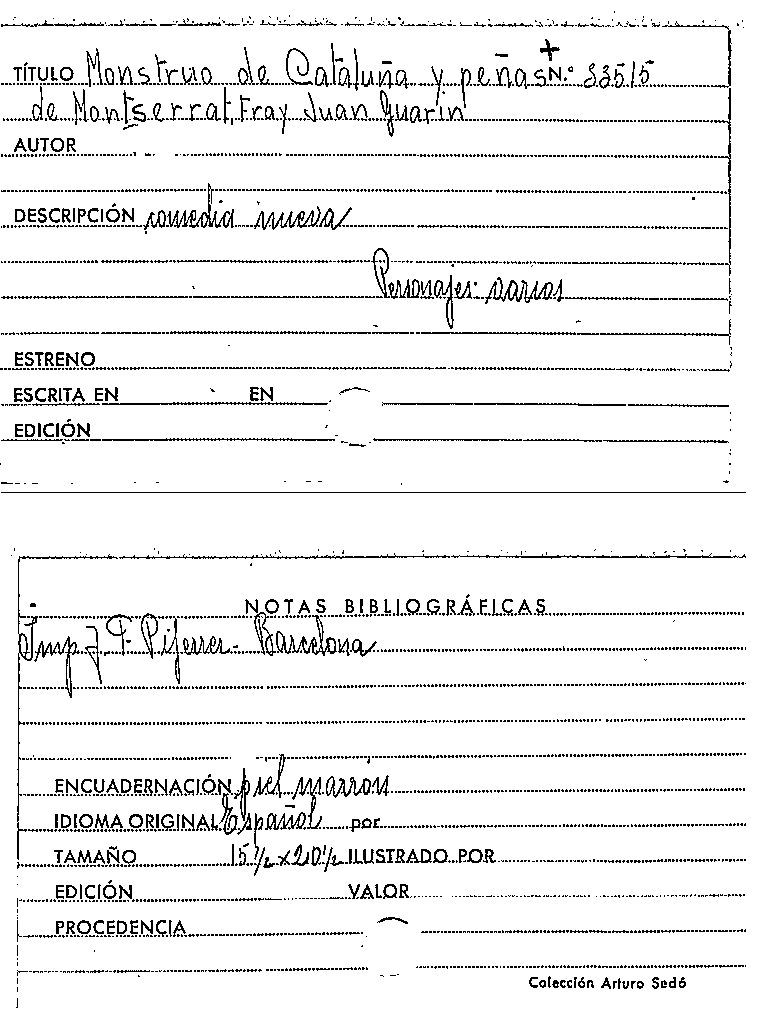 TÍTULO Monstruo de Cataluña y peñas N.º 33515
de Montserrat, Fray Juan Guarín
AUTOR
DESCRIPCIÓN comedia nueva
Personajes: varios
ESTRENO
ESCRITA EN EN
EDICIÓN
NOTAS BIBLIOGRÁFICAS
Imp. J. F. Piferrer - Barcelona
ENCUADERNACIÓN piel marrón
IDIOMA ORIGINAL Español por
TAMAÑO 15½ x 20½ ILUSTRADO POR
EDICIÓN VALOR
PROCEDENCIA
Colección Arturo Sedó